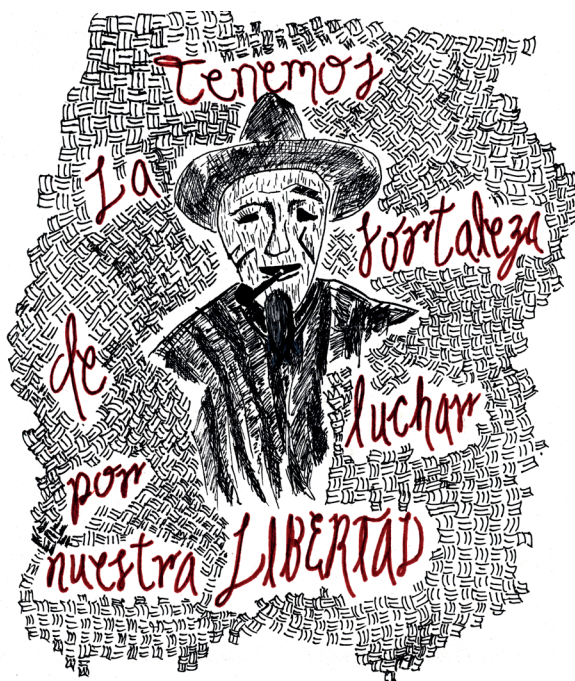 Tenemos
La
fortaleza
de
luchar
por
nuestra LIBERTAD